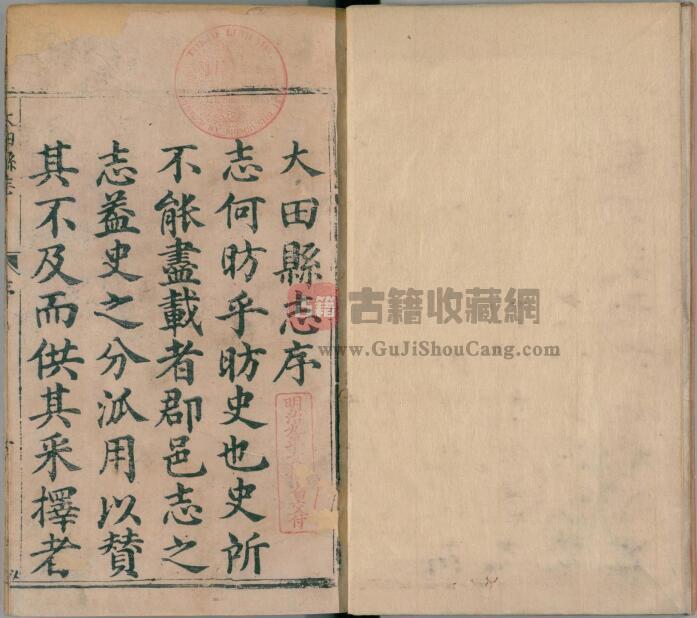 大田縣志序
志何昉乎昉史也史所
不能盡載者郡邑志之
志益史之分派用以贊
其不及而供其采擇者
大田縣志
序
古籍
古籍收藏網
www.GuJiShouCang.com